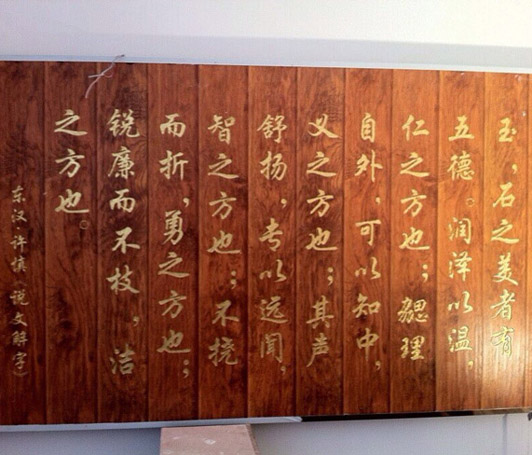 玉，石之美者有
五德。润泽以温，
仁之方也；勰理
自外，可以知中，
义之方也；其声
舒扬，专以远闻，
智之方也；不挠
而折，勇之方也；
锐廉而不枝，洁
之方也。
东汉·许慎《说文解字》